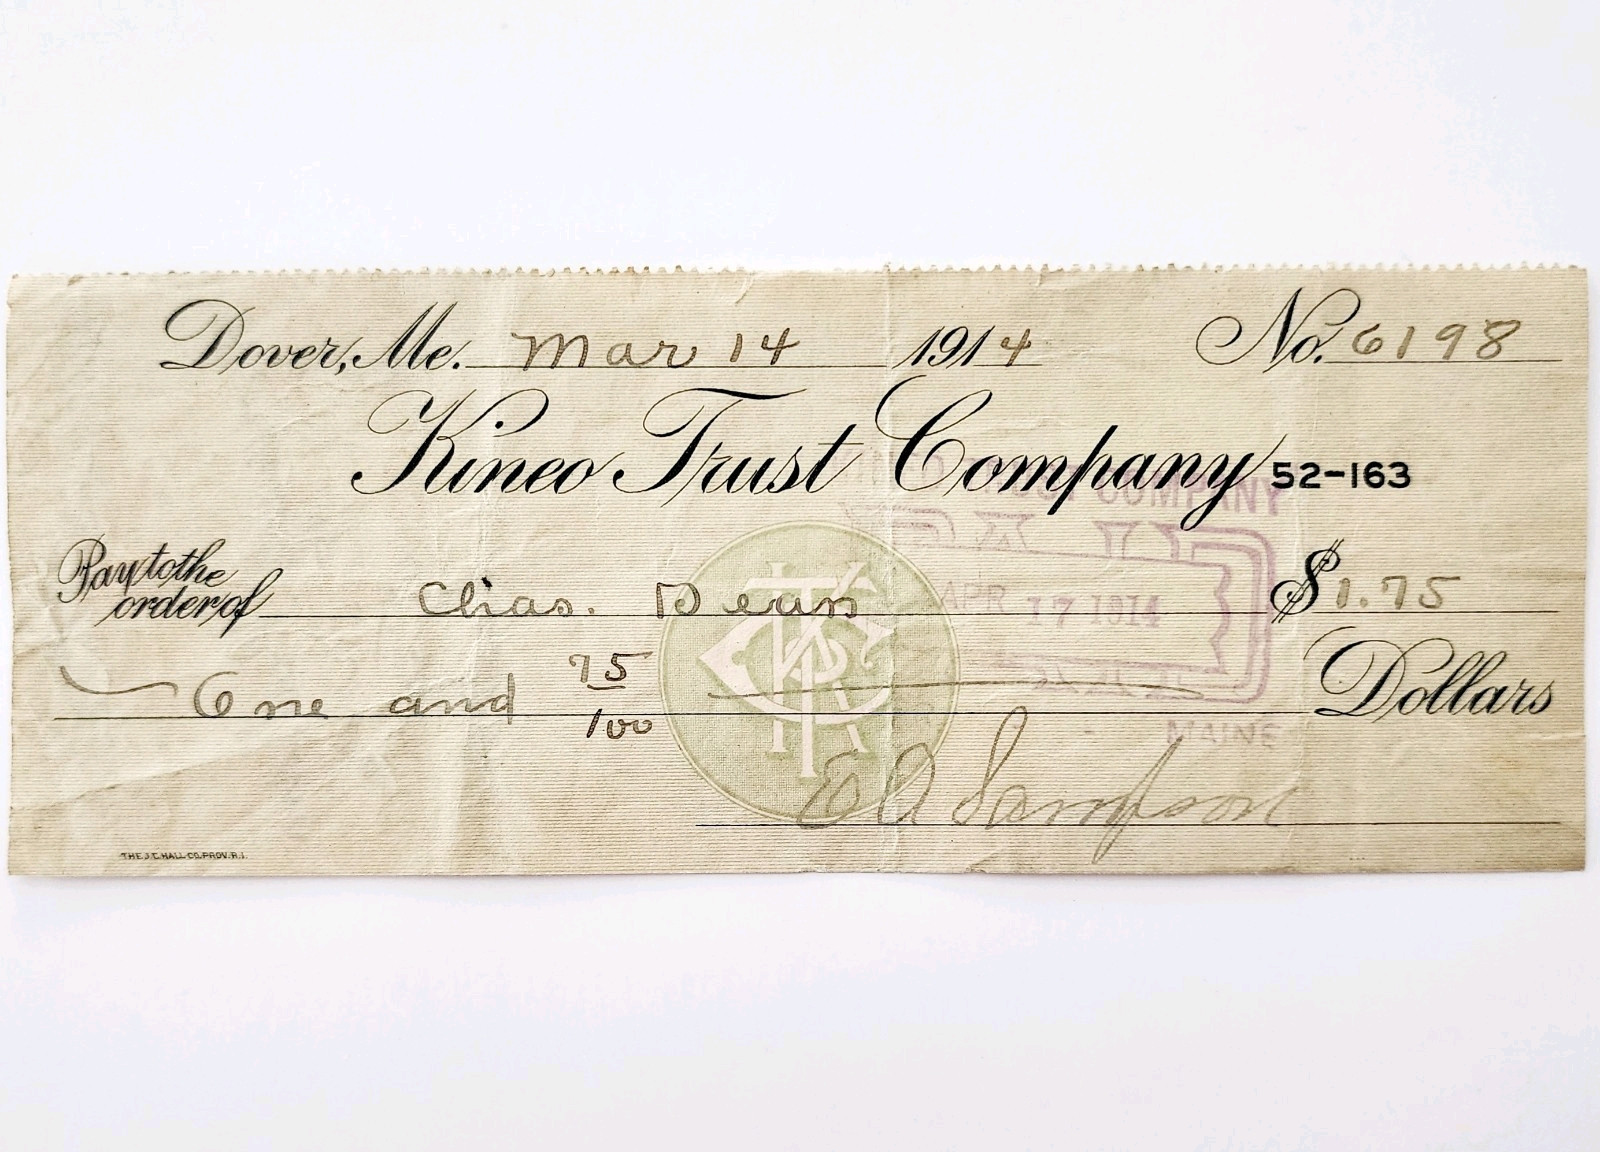 Dover, Me. Mar 14 1914 No. 6198
Kineo Trust Company 52-163
COMPANY
Pay to the order of Chas. Dean $1.75
APR 17 1914
One and 75/100 Dollars
MAINE
Sampson
THE J.C. HALL CO. PROV. R.I.